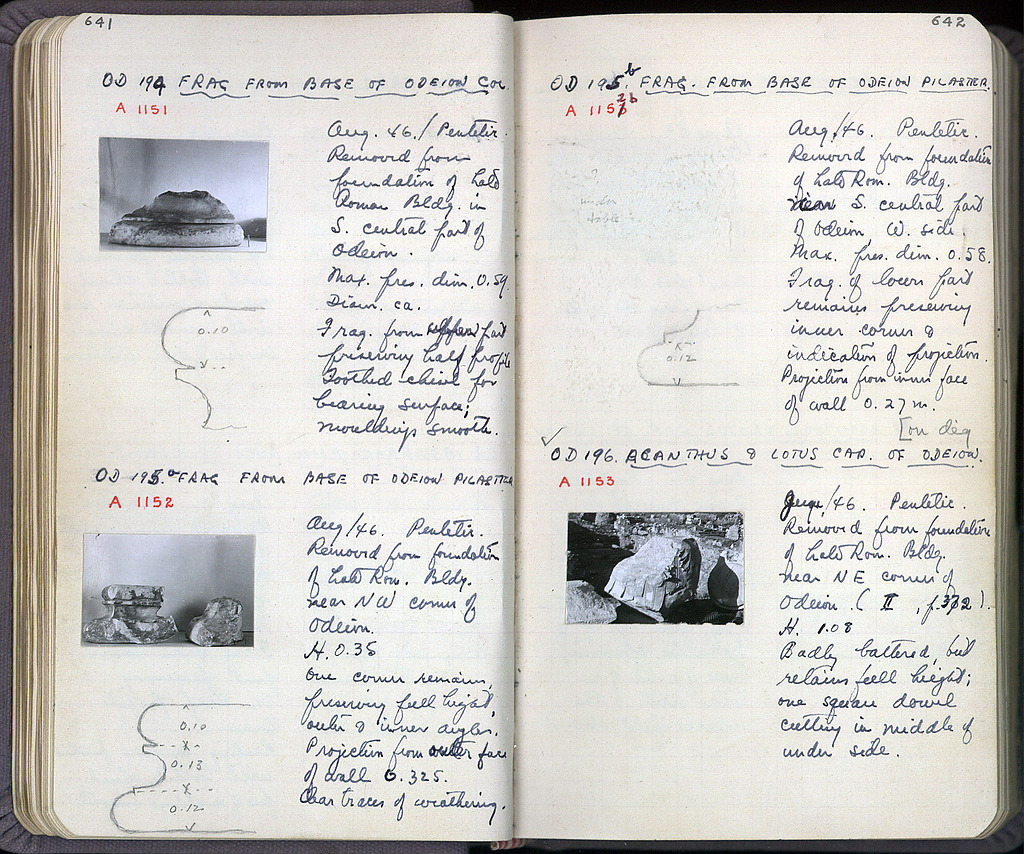 641
OD 194 FRAG FROM BASE OF ODEION COL.
A 1151
Aug. 46./ Pentelic.
Removed from
foundation of Late
Roman Bldg. in
S. central part of
Odeion.
Max. pres. dim. 0.59.
Diam. ca.
Frag. from upper part
preserving half profile
Toothed chisel for
bearing surface;
mouldings smooth.
0.10
OD 195.a FRAG FROM BASE OF ODEION PILASTER
A 1152
Aug/46. Pentelic.
Removed from foundation
of Late Rom. Bldg.
near NW corner of
Odeion.
H. 0.35
One corner remains,
preserving full height,
outer & inner angles.
Projection from outer face
of wall 0.325.
Clear traces of weathering.
0.10
0.13
0.12
642
OD 195.b FRAG. FROM BASE OF ODEION PILASTER.
A 1152b
Aug/46. Pentelic.
Removed from foundation
of Late Rom. Bldg.
near S. central part
of Odeion, W. side.
Max. pres. dim. 0.58.
Frag. of lower part
remains preserving
inner corner &
indication of projection.
Projection from inner face
of wall 0.27 m.
[on dig
under
table
0.12
✓
OD 196. ACANTHUS & LOTUS CAP. OF ODEION.
A 1153
/46. Pentelic.
Removed from foundation
of Late Rom. Bldg.
near NE corner of
Odeion. (II, p. 372).
H. 1.08
Badly battered, but
retains full height;
one square dowel
cutting in middle of
under side.